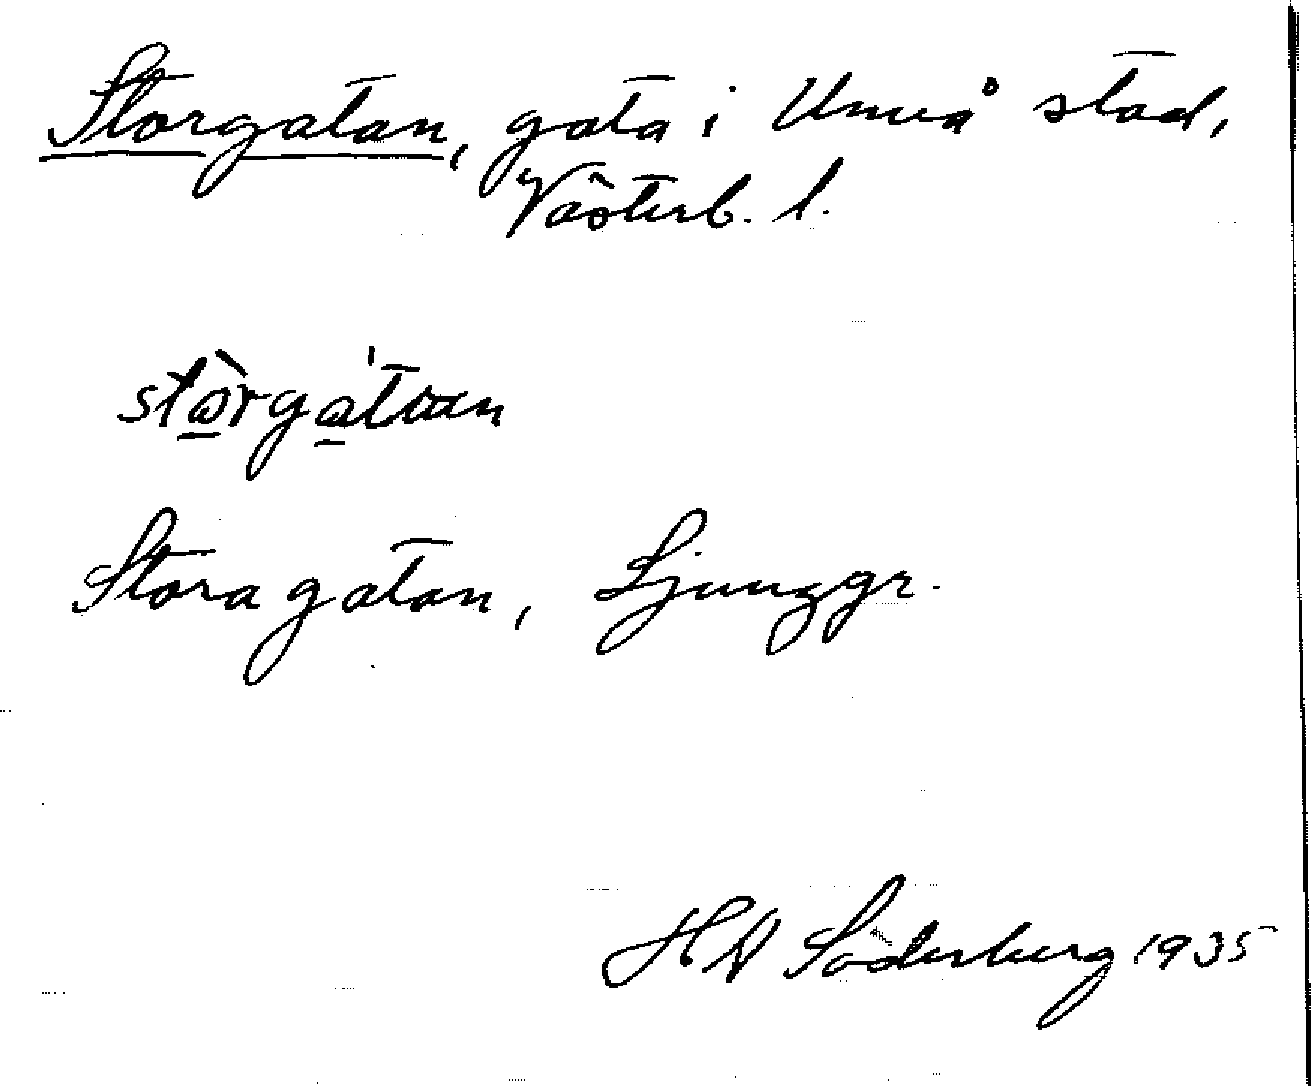 Storgatan, gata i Umeå stad,
Västerb. l.
Stora gatan, Ljunggr.
Söderberg 1935